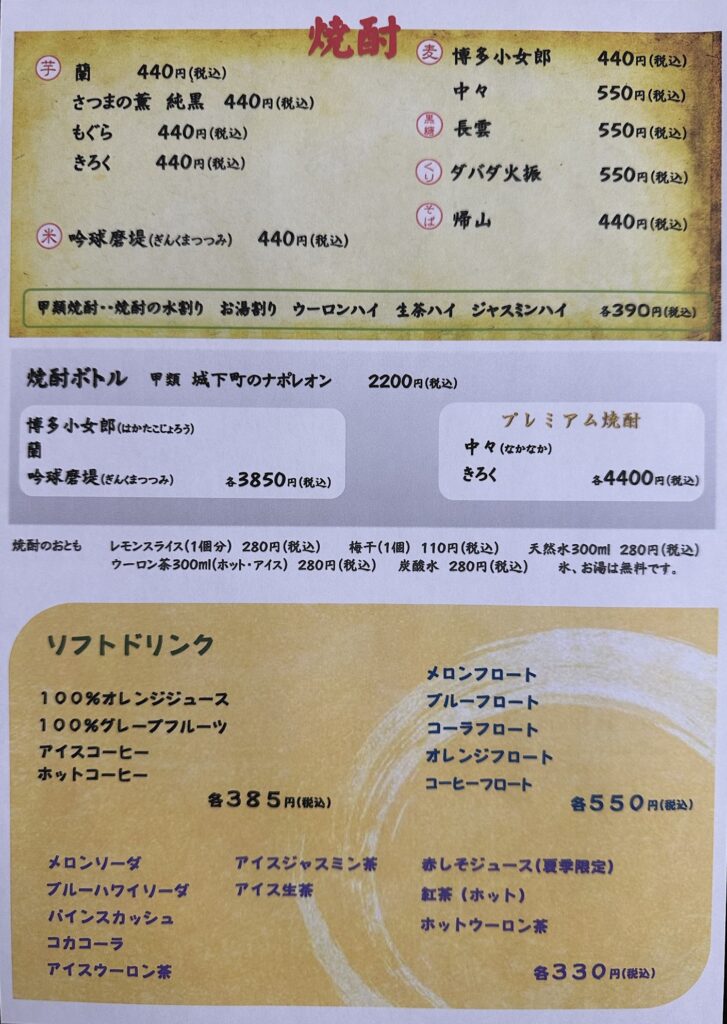 焼酎
芋 蘭 440円(税込)
さつまの薫 純黒 440円(税込)
もぐら 440円(税込)
きろく 440円(税込)
米 吟球磨堤(ぎんくまつつみ) 440円(税込)
麦 博多小女郎 440円(税込)
中々 550円(税込)
黒糖 長雲 550円(税込)
くり ダバダ火振 550円(税込)
そば 帰山 440円(税込)
甲類焼酎‥焼酎の水割り お湯割り ウーロンハイ 生茶ハイ ジャスミンハイ 各390円(税込)
焼酎ボトル 甲類 城下町のナポレオン 2200円(税込)
博多小女郎(はかたこじょろう)
蘭
吟球磨堤(ぎんくまつつみ) 各3850円(税込)
プレミアム焼酎
中々(なかなか)
きろく 各4400円(税込)
焼酎のおとも レモンスライス(1個分) 280円(税込) 梅干(1個) 110円(税込) 天然水300ml 280円(税込)
ウーロン茶300ml(ホット・アイス) 280円(税込) 炭酸水 280円(税込) 氷、お湯は無料です。
ソフトドリンク
100%オレンジジュース
100%グレープフルーツ
アイスコーヒー
ホットコーヒー
各385円(税込)
メロンフロート
ブルーフロート
コーラフロート
オレンジフロート
コーヒーフロート
各550円(税込)
メロンソーダ
ブルーハワイソーダ
パインスカッシュ
コカコーラ
アイスウーロン茶
アイスジャスミン茶
アイス生茶
赤しそジュース(夏季限定)
紅茶(ホット)
ホットウーロン茶
各330円(税込)